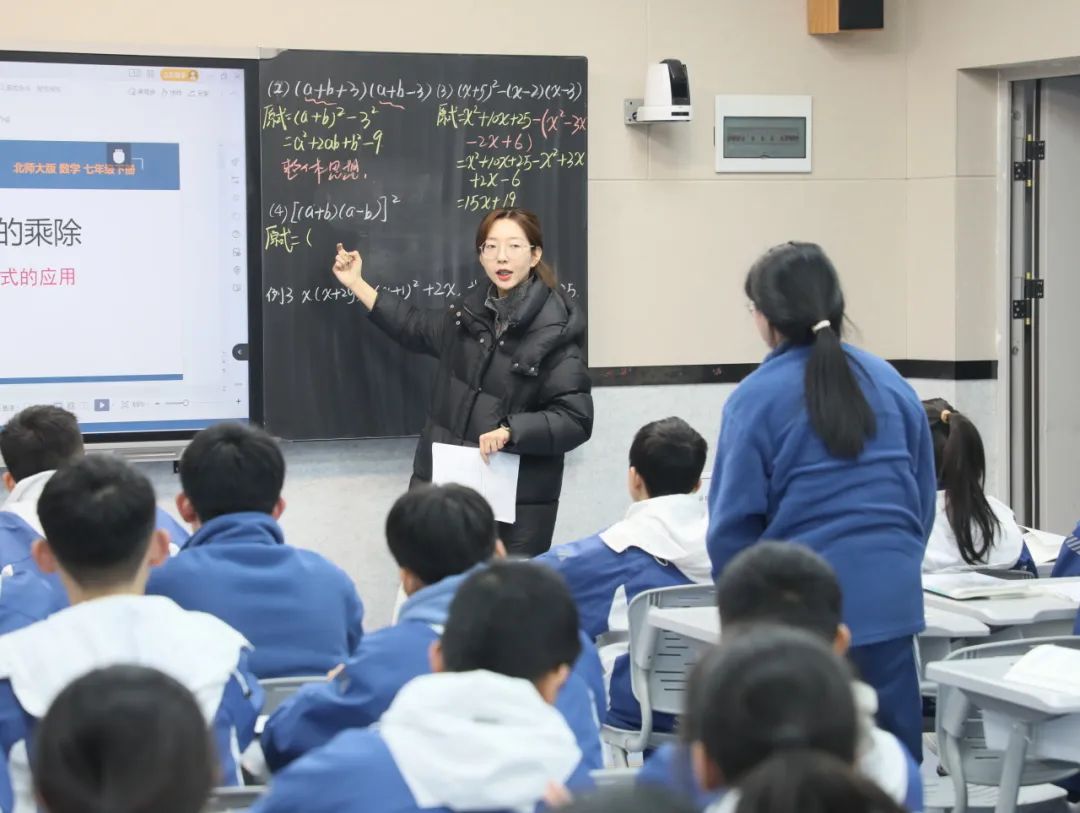 北师大版 数学 七年级下册
的乘除
式的应用
(2) (a+b+3)(a+b-3)
原式=(a+b)²-3²
=a²+2ab+b²-9
整体思想.
(3) (x+5)²-(x-2)(x-3)
原式=x²+10x+25-(x²-3x
-2x+6)
=x²+10x+25-x²+3x
+2x-6
=15x+19
(4) [(a+b)(a-b)]²
原式=(
例3 x(x+2y
+1)²+2x